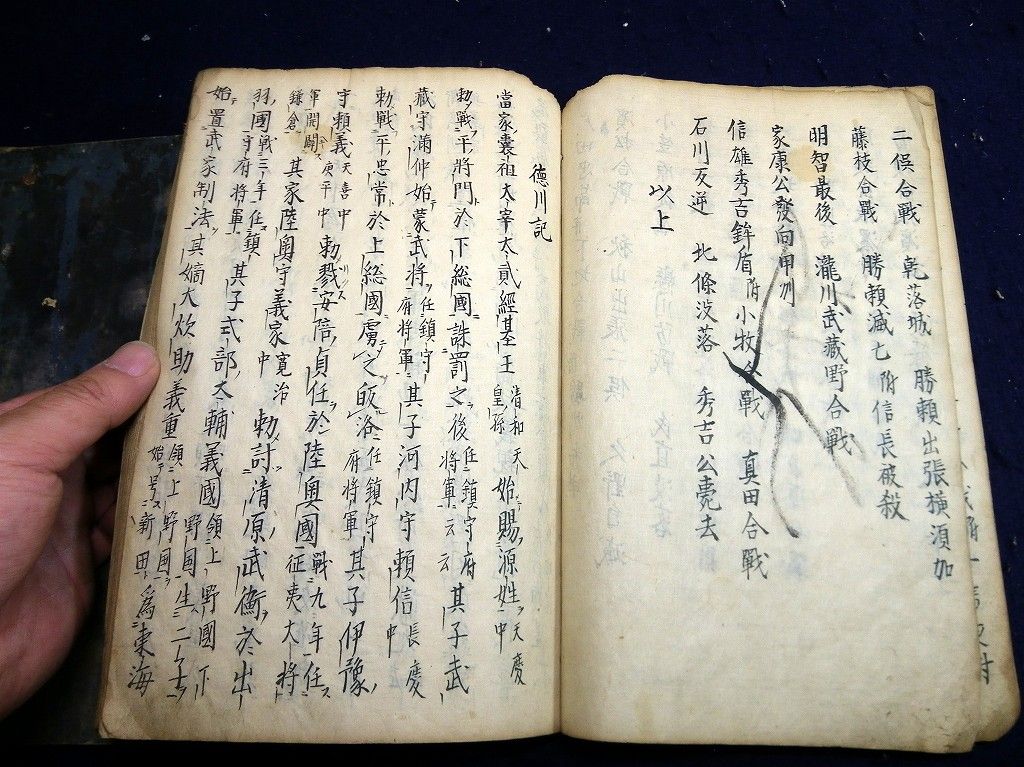 二俣合戦 乾落城 勝頼出張横須加
藤枝合戦 勝頼滅亡 附信長被殺
明智最後 瀧川武蔵野合戦
家康公發向甲州
信雄秀吉鉾盾 附小牧合戰 真田合戰
石川反逆 北條没落 秀吉公薨去
以上
德川記
當家嚢祖太宰太貳經基王 清和天皇孫 始賜源姓 天慶中
勅戰平將門於下総國誅罰之後 任鎮守府将軍云云 其子武
藏守滿仲始蒙武将 任鎮守府将軍 其子河内守頼信 長慶中
勅戰平忠常於上総國虜之皈洛 任鎮守府将軍 其子伊豫
守頼義 天喜中康平中 勅戮安陪貞任於陸奥國 戰九年任征夷大将
軍開闢鎌倉 其家陸奥守義家 寛治中 勅討清原武衡於出
羽國 戰三年任鎮守府将軍 其子式部大輔義國 領上野國下野国生二子
始置武家制法其嫡大炊助義重 領上野国始号新田 為東海